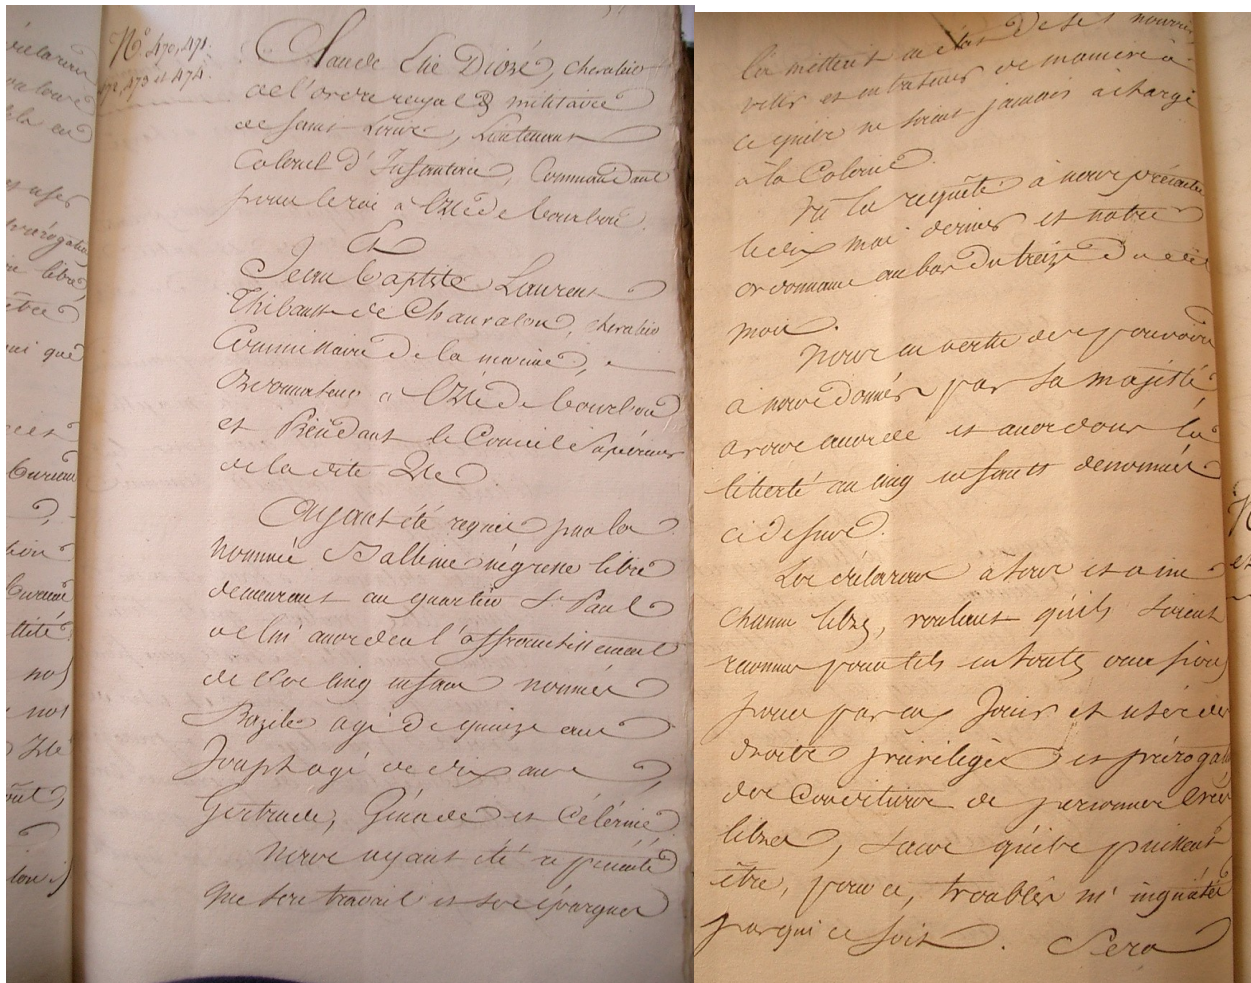 N.° 470, 471.
472, 473 et 474.
Claude Elie Dioré, chevalier
de l'ordre royal & militaire
de saint Louis, Lieutenant
Colonel d'Infanterie, Commandant
pour le roi a l'Isle de bourbon.
Et
Jean baptiste Laurent
Thibault de Chanvalon, chevalier
Commissaire de la marine,
Ordonnateur a l'Isle de bourbon
et Présidant le Conseil Supérieur
de la dite Isle
Ayant été requis par la
nommée Balbine négresse libre
demeurant au quartier St. Paul
de lui accorder l'affranchissement
de ses cinq enfans nommés
Bazile agé de quinze ans
Joseph agé de dix ans,
Gertrude, et Célérine
nous ayant été représenté
que son travail et ses épargnes
la mettent a état de les nourrir,
vetir et entretenir de maniere à
ce qu'ils ne soient jamais à charge
à la Colonie.
Vu la requête à nous présentée
le dix mai dernier et notre
ordonnance au bas du treize du
mois.
Nous en vertu des pouvoirs
à nous donnés par sa majesté
avons accordé et accordons la
liberté au cinq enfants denommés
ci dessus.
Les déclarons à tous et a un
chacun libres, voulant qu'ils soient
reconnus pour tels en toutes occasions
pour par eux Jouir et user des
droits privilèges et prérogat
des Conditions de personnes nées
libres, sans qu'ils puissent
être, pour ce, troublés ni inquiétés
par qui ce soit. Sera